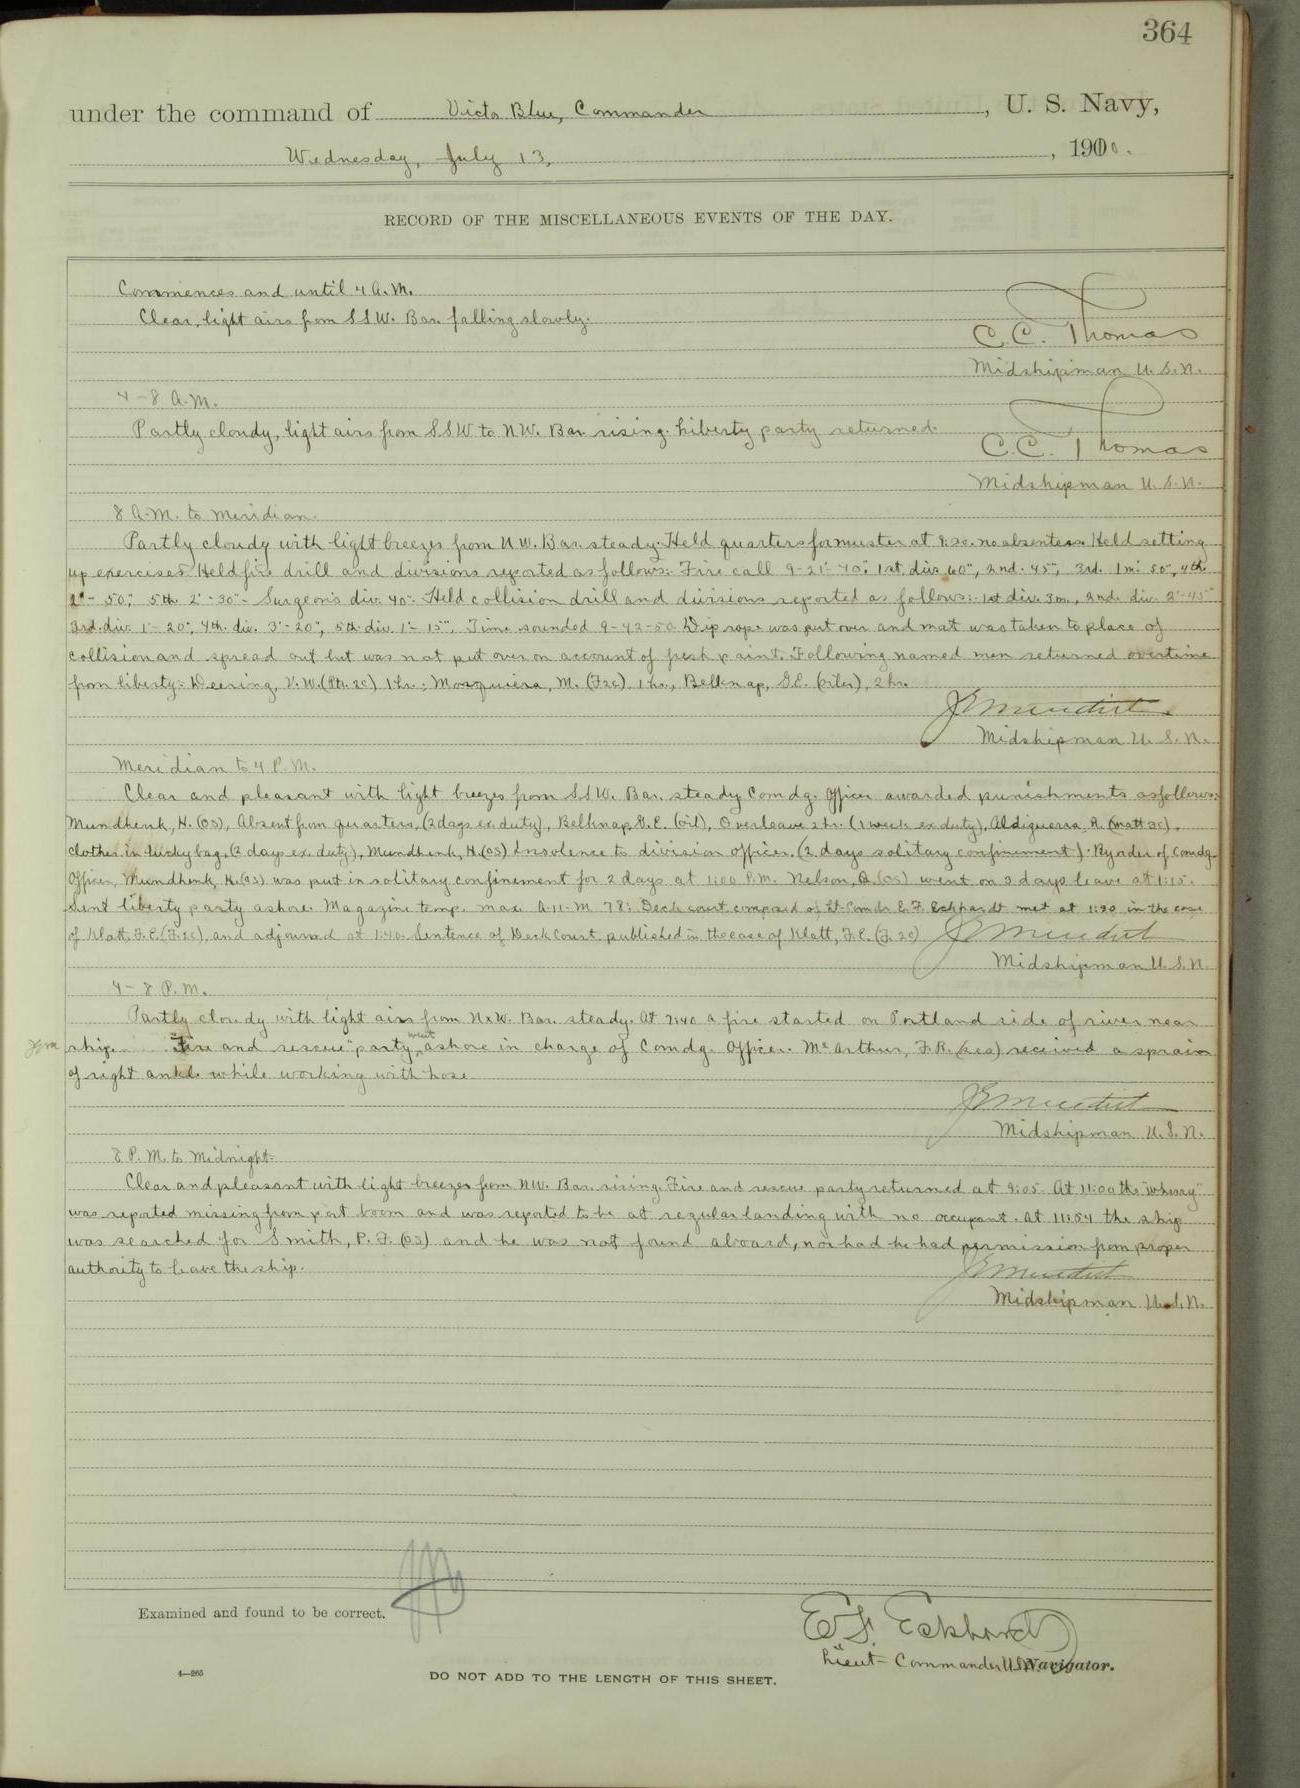 364
under the command of Victor Blue, Commander, U. S. Navy,
Wednesday, July 13, 1910.
RECORD OF THE MISCELLANEOUS EVENTS OF THE DAY.
Commences and until 4 A.M.
Clear, light airs from S.S.W. Bar. falling slowly.
C.C. Thomas
Midshipman U.S.N.
4-8 A.M.
Partly cloudy, light airs from S.S.W. to N.W. Bar. rising. Liberty party returned.
C.C. Thomas
Midshipman U.S.N.
8 A.M. to Meridian.
Partly cloudy with light breezes from N.W. Bar. steady. Held quarters for muster at 9:20. no absentees. Held setting
up exercises. Held fire drill and divisions reported as follows:- Fire call 9-21'-40", 1st. div. 60", 2nd. 45", 3rd. 1m. 50", 4th.
2'- 50", 5th. 2'-30"- Surgeon's div. 40". Held collision drill and divisions reported as follows:- 1st div. 3m., 2nd. div. 2'-45"
3rd. div. 1'-20", 4th. div. 3'-20", 5th. div. 1'-15". Time sounded 9-42-50. Dip rope was put over and mat was taken to place of
collision and spread out but was not put over on account of fresh paint. Following named men returned overtime
from liberty:- Deering, V.W. (Ptr. 2c) 1 hr.; Mosquiera, M. (F2c) 1 hr., Belknap, G.E. (oiler), 2 hr.
Midshipman U.S.N.
Meridian to 4 P.M.
Clear and pleasant with light breezes from S.S.W. Bar. steady. Comdg. Officer awarded punishments as follows:
Mundhenk, H. (OS), Absent from quarters, (2 days ex. duty), Belknap, G.E. (oil), Overleave 2 hr. (1 week ex duty), Aldiguerra, A. (Matt 3c),
clothes in lucky bag, (2 days ex. duty), Mundhenk, H. (OS) Insolence to division officer. (2 days solitary confinement). By order of Comdg.
Officer, Mundhenk, H. (OS) was put in solitary confinement for 2 days at 1:00 P.M. Nelson, (OS) went on 3 days leave at 1:15.
Sent liberty party ashore. Magazine temp. max A-11-M 78°. Deck court composed of Lt-Comdr E.F. Eckhardt met at 1:30 in the case
of Klatt, F.C. (F.2c), and adjourned at 1:40. Sentence of Deck Court published in the case of Klatt, F.C. (F. 2c)
Midshipman U.S.N.
4-8 P.M.
Partly cloudy with light airs from NxW. Bar. steady. At 7:40 a fire started on Portland side of river near
ship. "Fire and rescue" party went ashore in charge of Comdg. Officer. McArthur, F.R. (sea) received a sprain
of right ankle while working with hose.
Midshipman U.S.N.
8 P.M. to Midnight.
Clear and pleasant with light breezes from NW. Bar. rising. Fire and rescue party returned at 9:05. At 11:00 the "wherry"
was reported missing from port boom and was reported to be at regular landing with no occupant. At 11:54 the ship
was searched for Smith, P.F. (OS) and he was not found aboard, nor had he had permission from proper
authority to leave the ship.
Midshipman U.S.N.
Examined and found to be correct.
E.F. Eckhardt
Lieut-Commander U.S.N. Navigator.
4—265
DO NOT ADD TO THE LENGTH OF THIS SHEET.